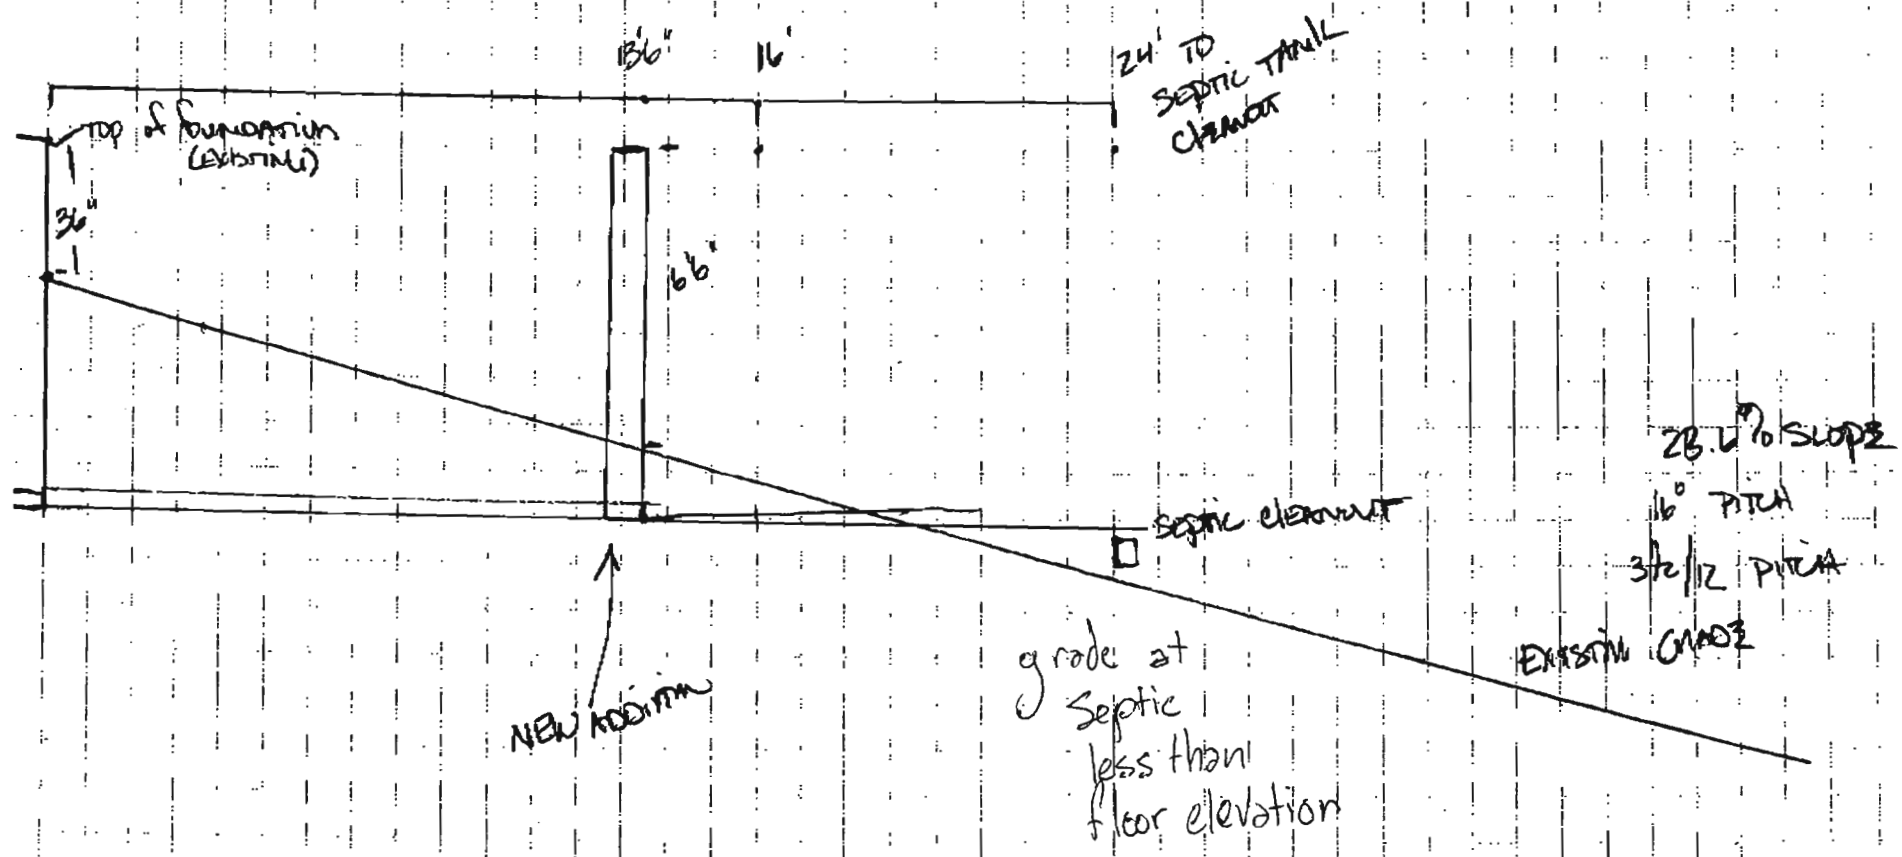 13'6"
16'
24' TO
SEPTIC TANK
CLEANOUT
TOP of FOUNDATION
(EXISTING)
36"
6'6"
28.6% SLOPE
16° PITCH
3 1/2/12 PITCH
SEPTIC CLEANOUT
EXISTING GRADE
NEW ADDITION
grade at
Septic
less than
floor elevation